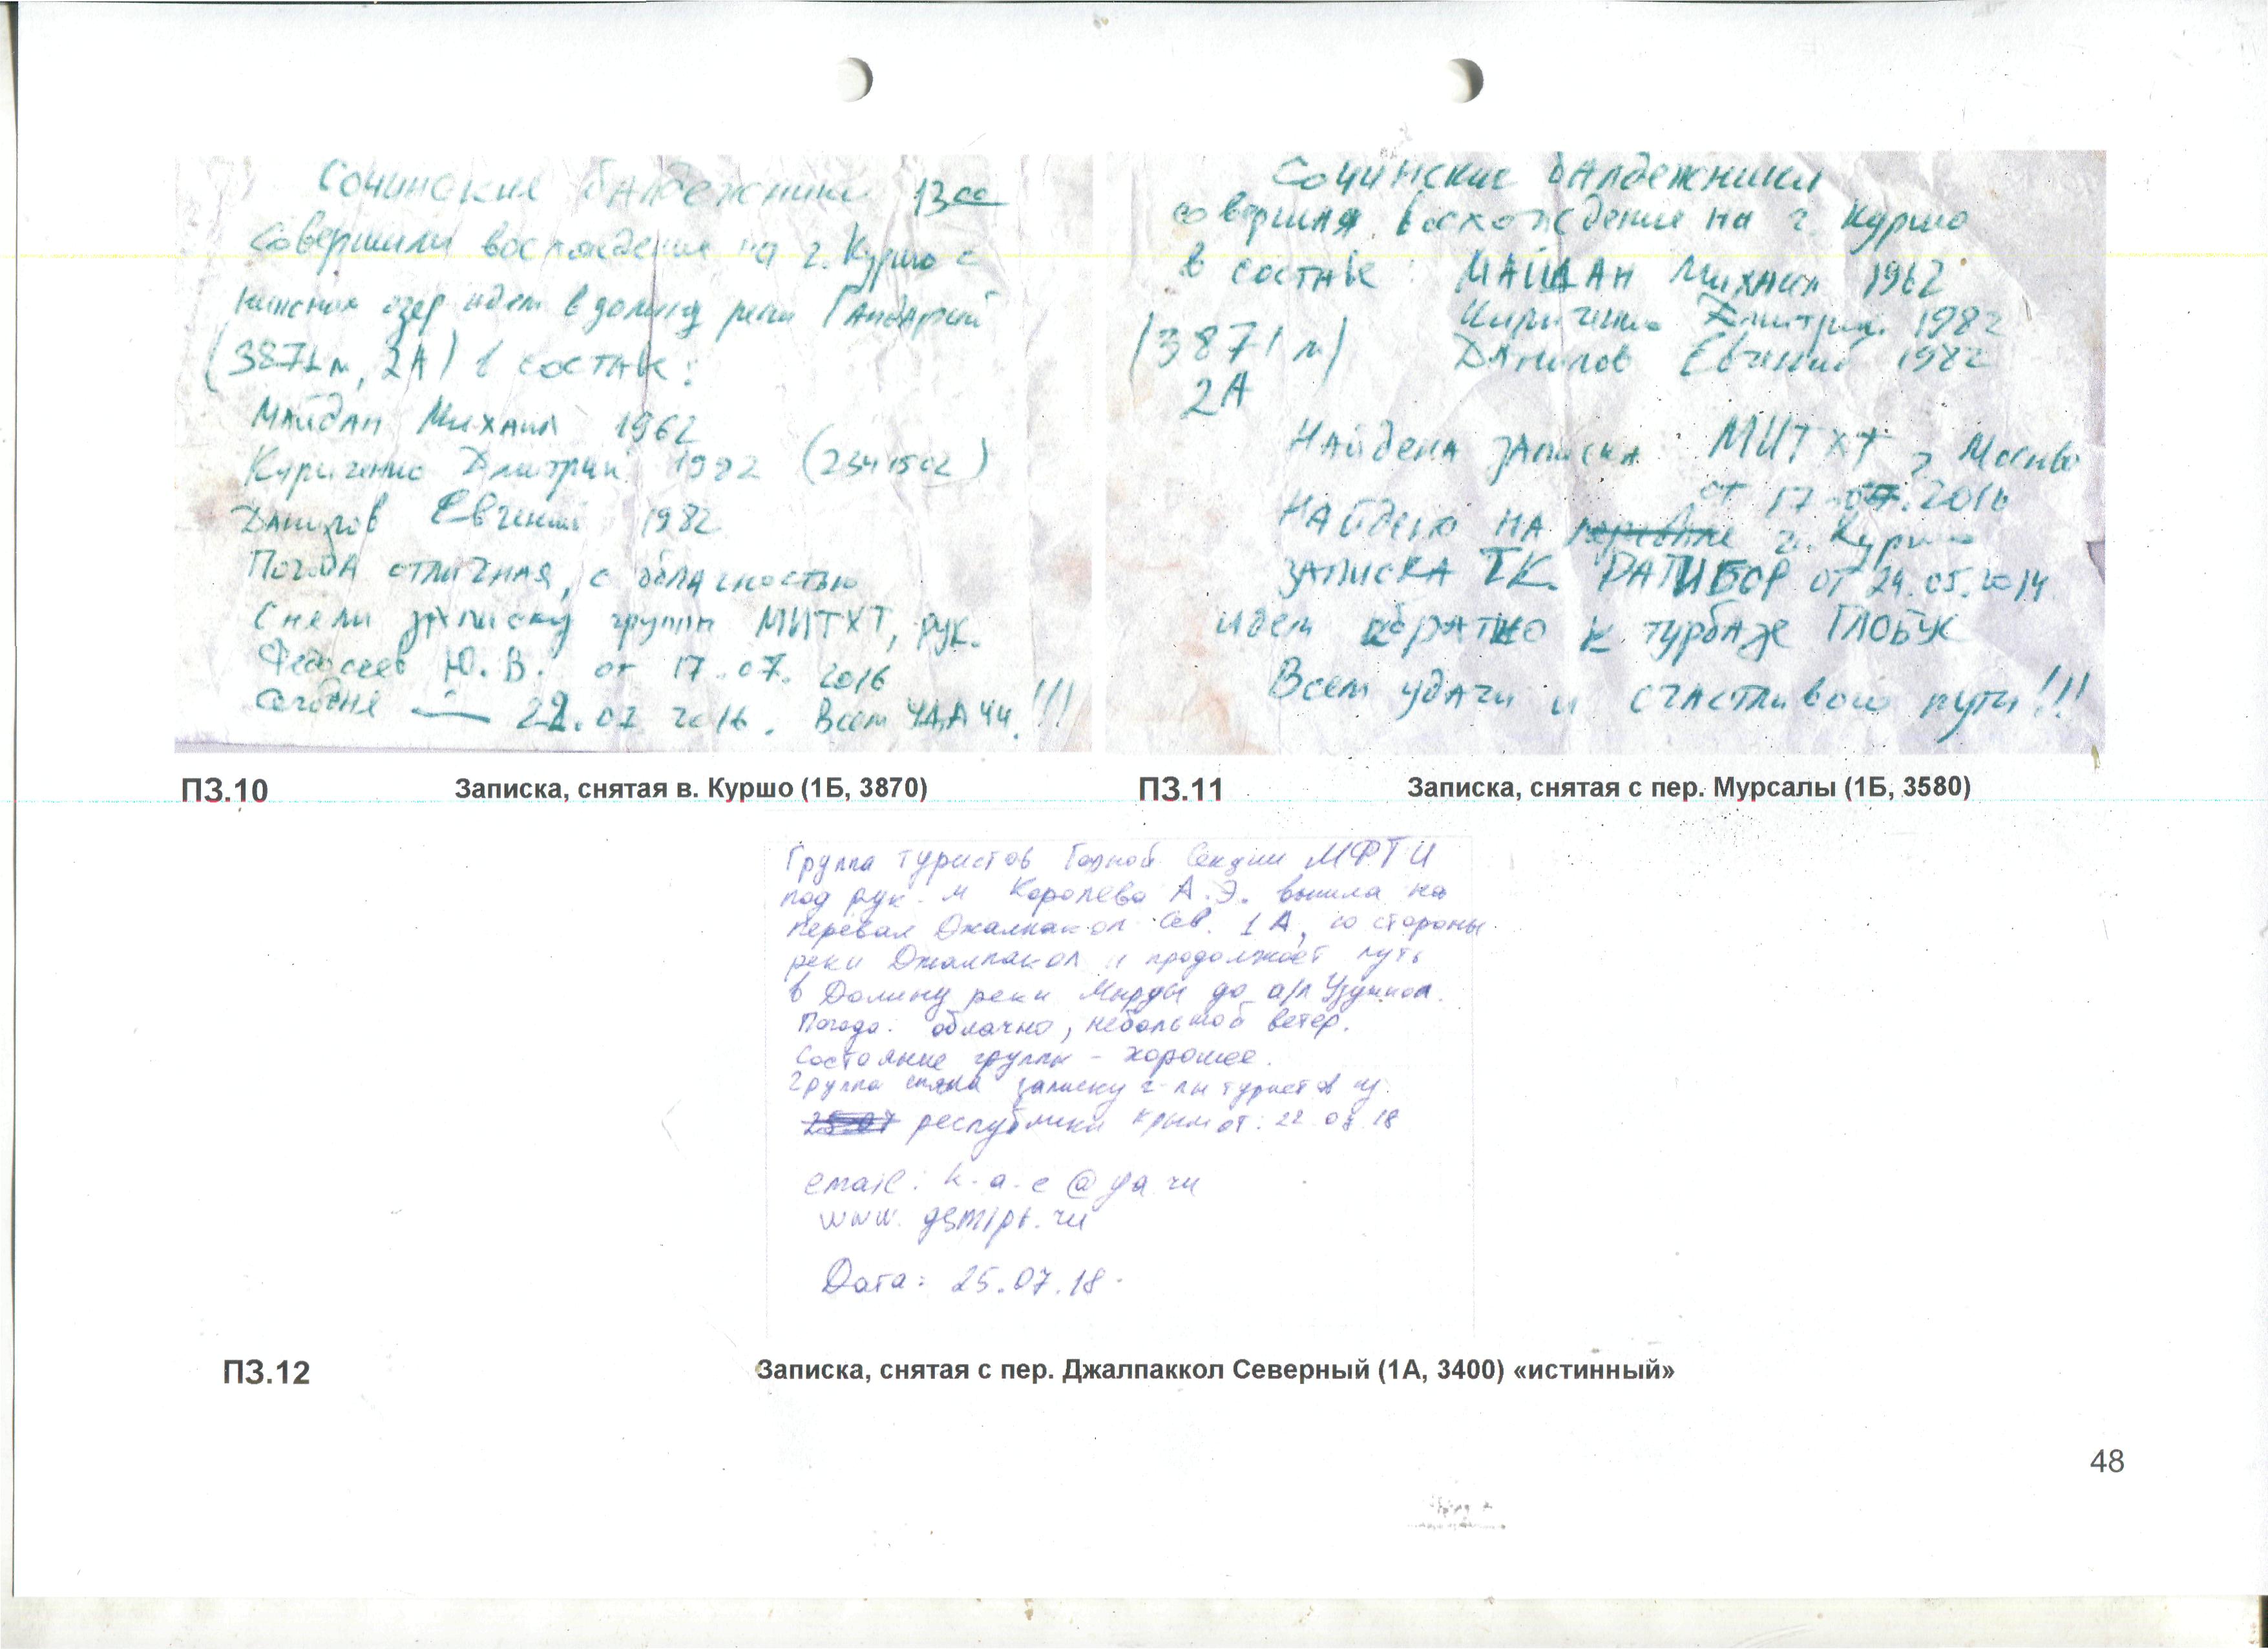 Сочинские балдежники 13 00
Совершили восхождение на г. Куршо с
озер идем в долину реки
(3871 м, 2А) в составе:
Майдан Михаил 1962
Кириченко Дмитрий 1982 (2341502)
Данилов Евгений 1982
Погода отличная, с облачностью
Сняли записку группы МИТХТ, рук.
Федосеев Ю.В. от 17.07.2016
Сегодня 22.07 2016. Всем удачи!!!
ПЗ.10 Записка, снятая в. Куршо (1Б, 3870)
Сочинские балдежники
совершая восхождение на г. Куршо
в составе: Майдан Михаил 1962
Кириченко Дмитрий 1982
(3871 м) Данилов Евгений 1982
2А
Найдена записка МИТХТ г. Москва
от 17.07.2016
Найдена на г. Куршо
записка ТК РАТИБОР от 24.05.2014
идем обратно к турбазе ГЛОБУС
Всем удачи и счастливого пути!!!
ПЗ.11 Записка, снятая с пер. Мурсалы (1Б, 3580)
Группа туристов Горной Секции МФТИ
под рук-м Королёва А.Э. вышла на
перевал Джалпакол Сев. 1А, со стороны
реки Джалпакол и продолжает путь
в Долину реки Мырды до а/л Узункол.
Погода: облачно, небольшой ветер.
Состояние группы - хорошее.
Группа сняла записку г-пы туристов из
республики Крым от: 22 07 18
email: k.a.e@ya.ru
www.gsmipt.ru
Дата: 25.07.18.
ПЗ.12 Записка, снятая с пер. Джалпаккол Северный (1А, 3400) «истинный»
48